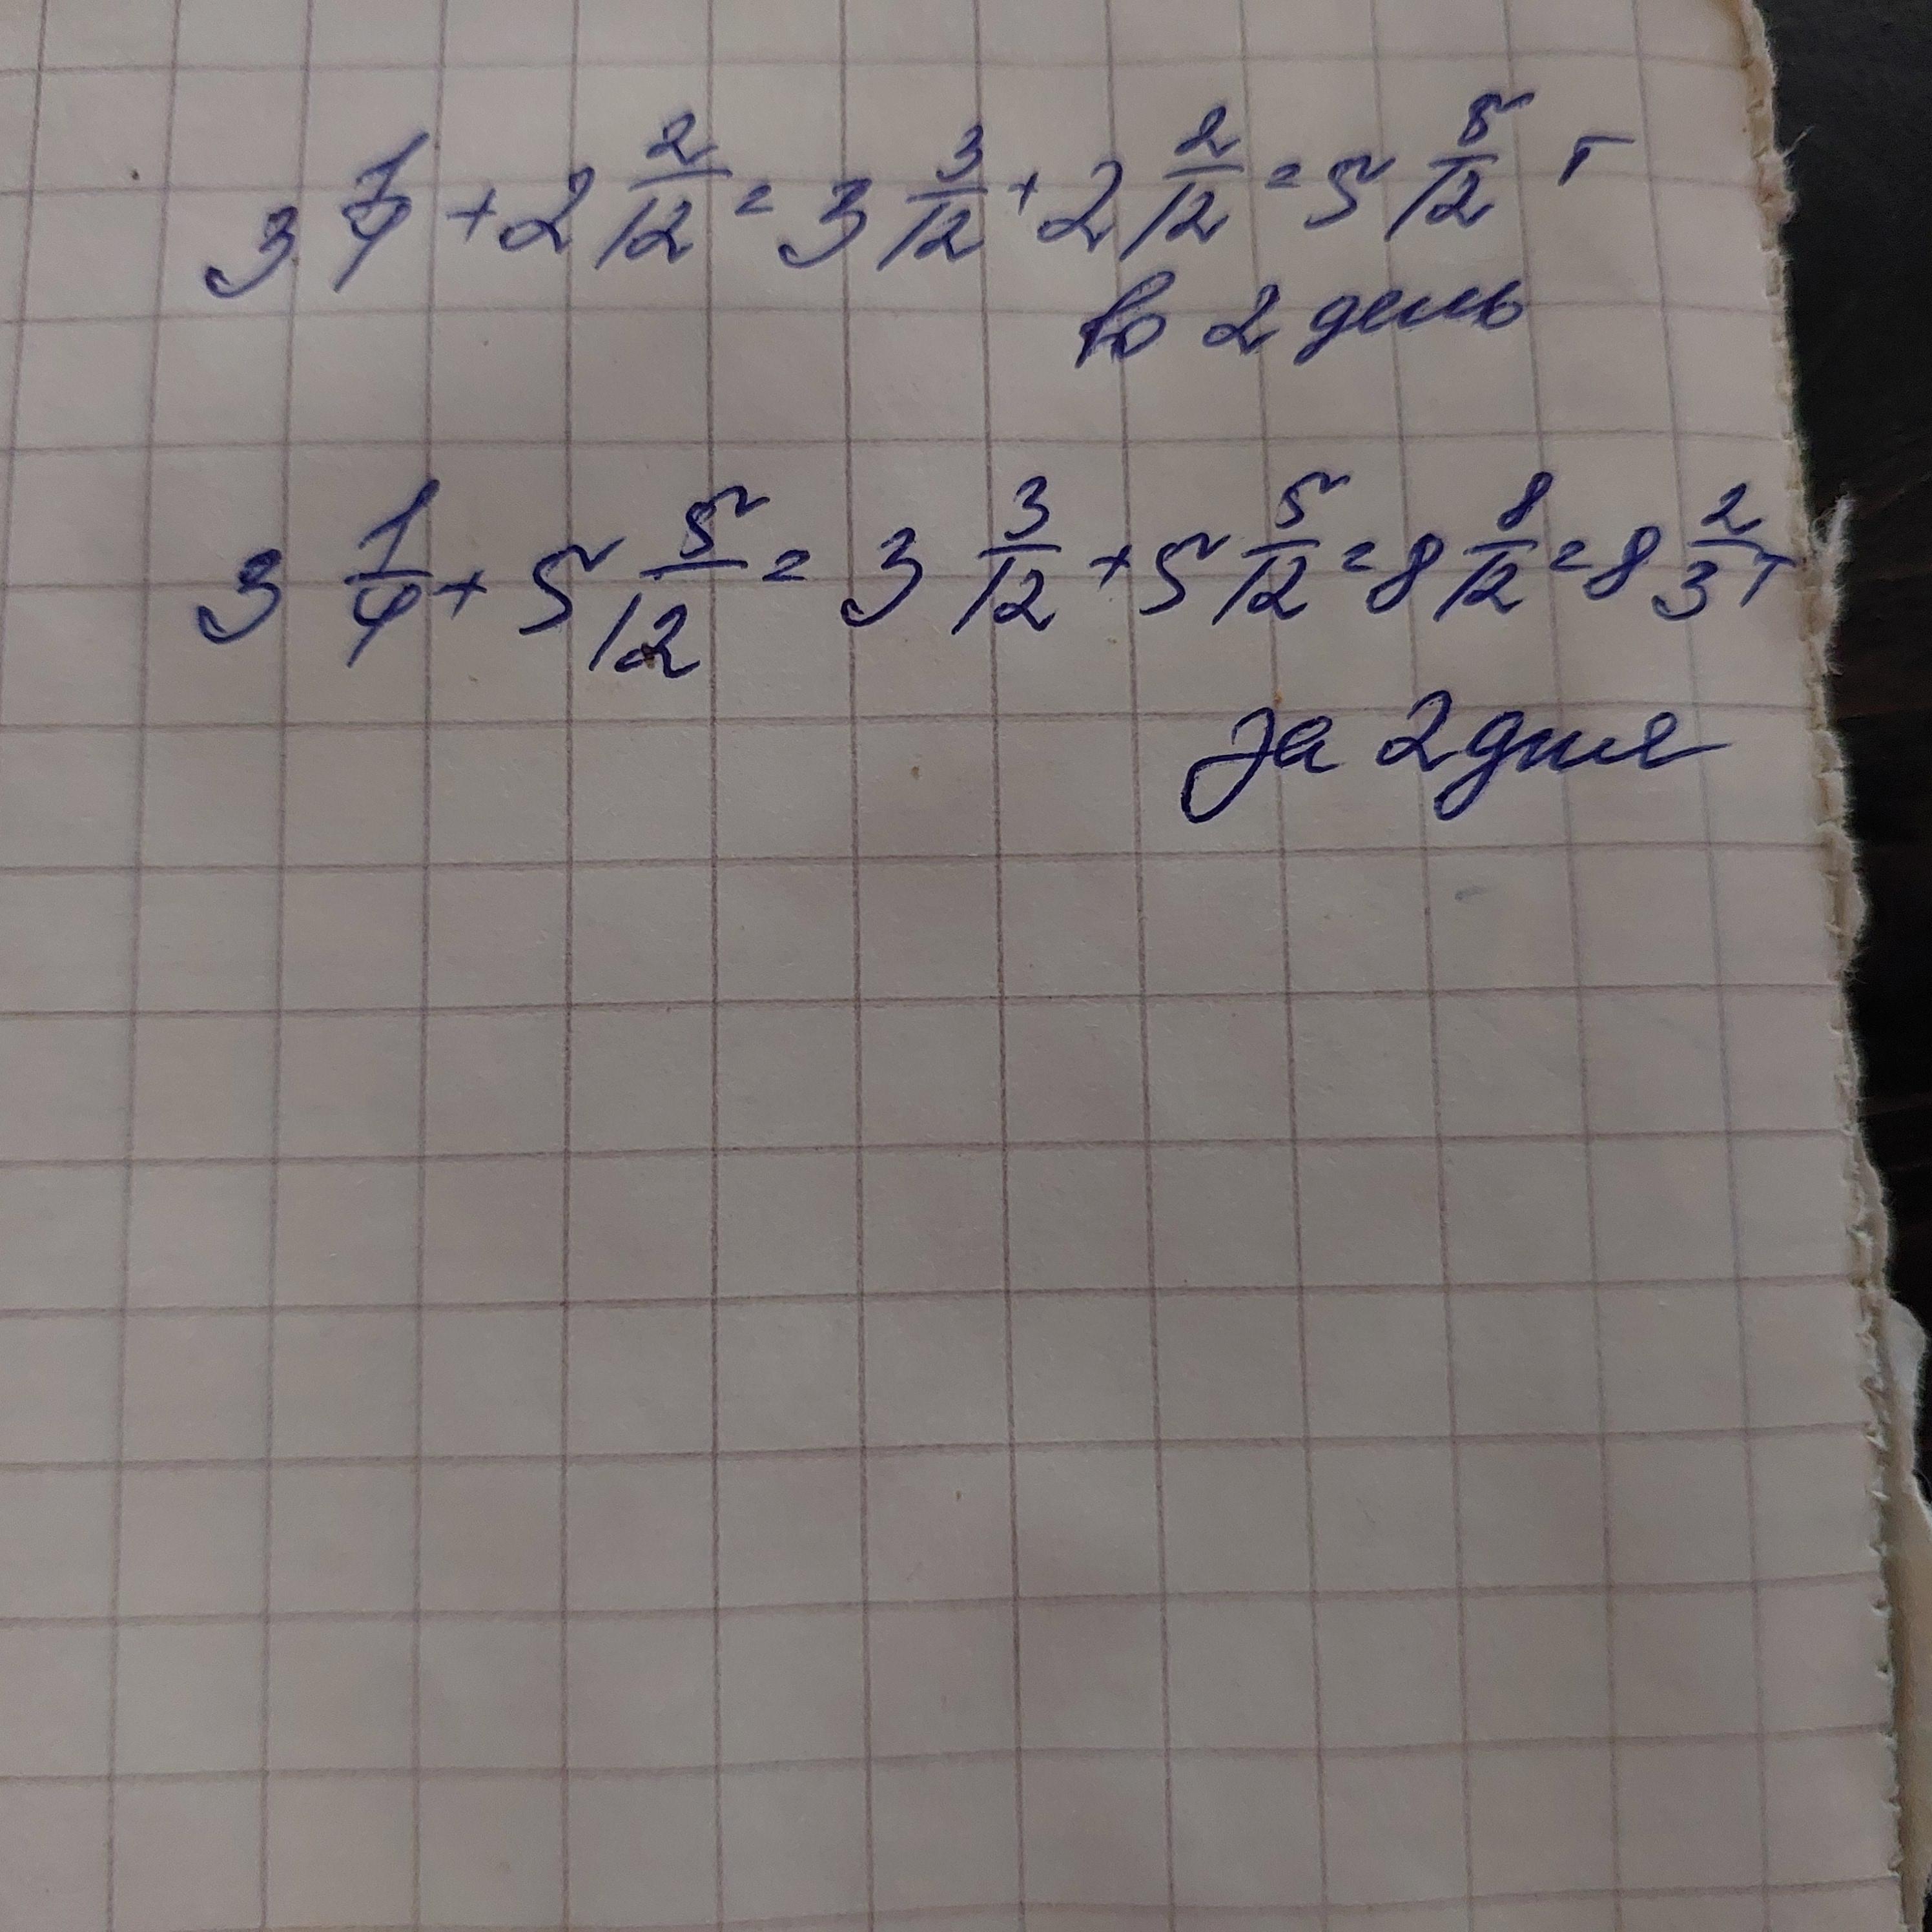 3 1/4 + 2 2/12 = 3 3/12 + 2 2/12 = 5 5/12 т
во 2 день
3 1/4 + 5 5/12 = 3 3/12 + 5 5/12 = 8 8/12 = 8 2/3 т
за 2 дня